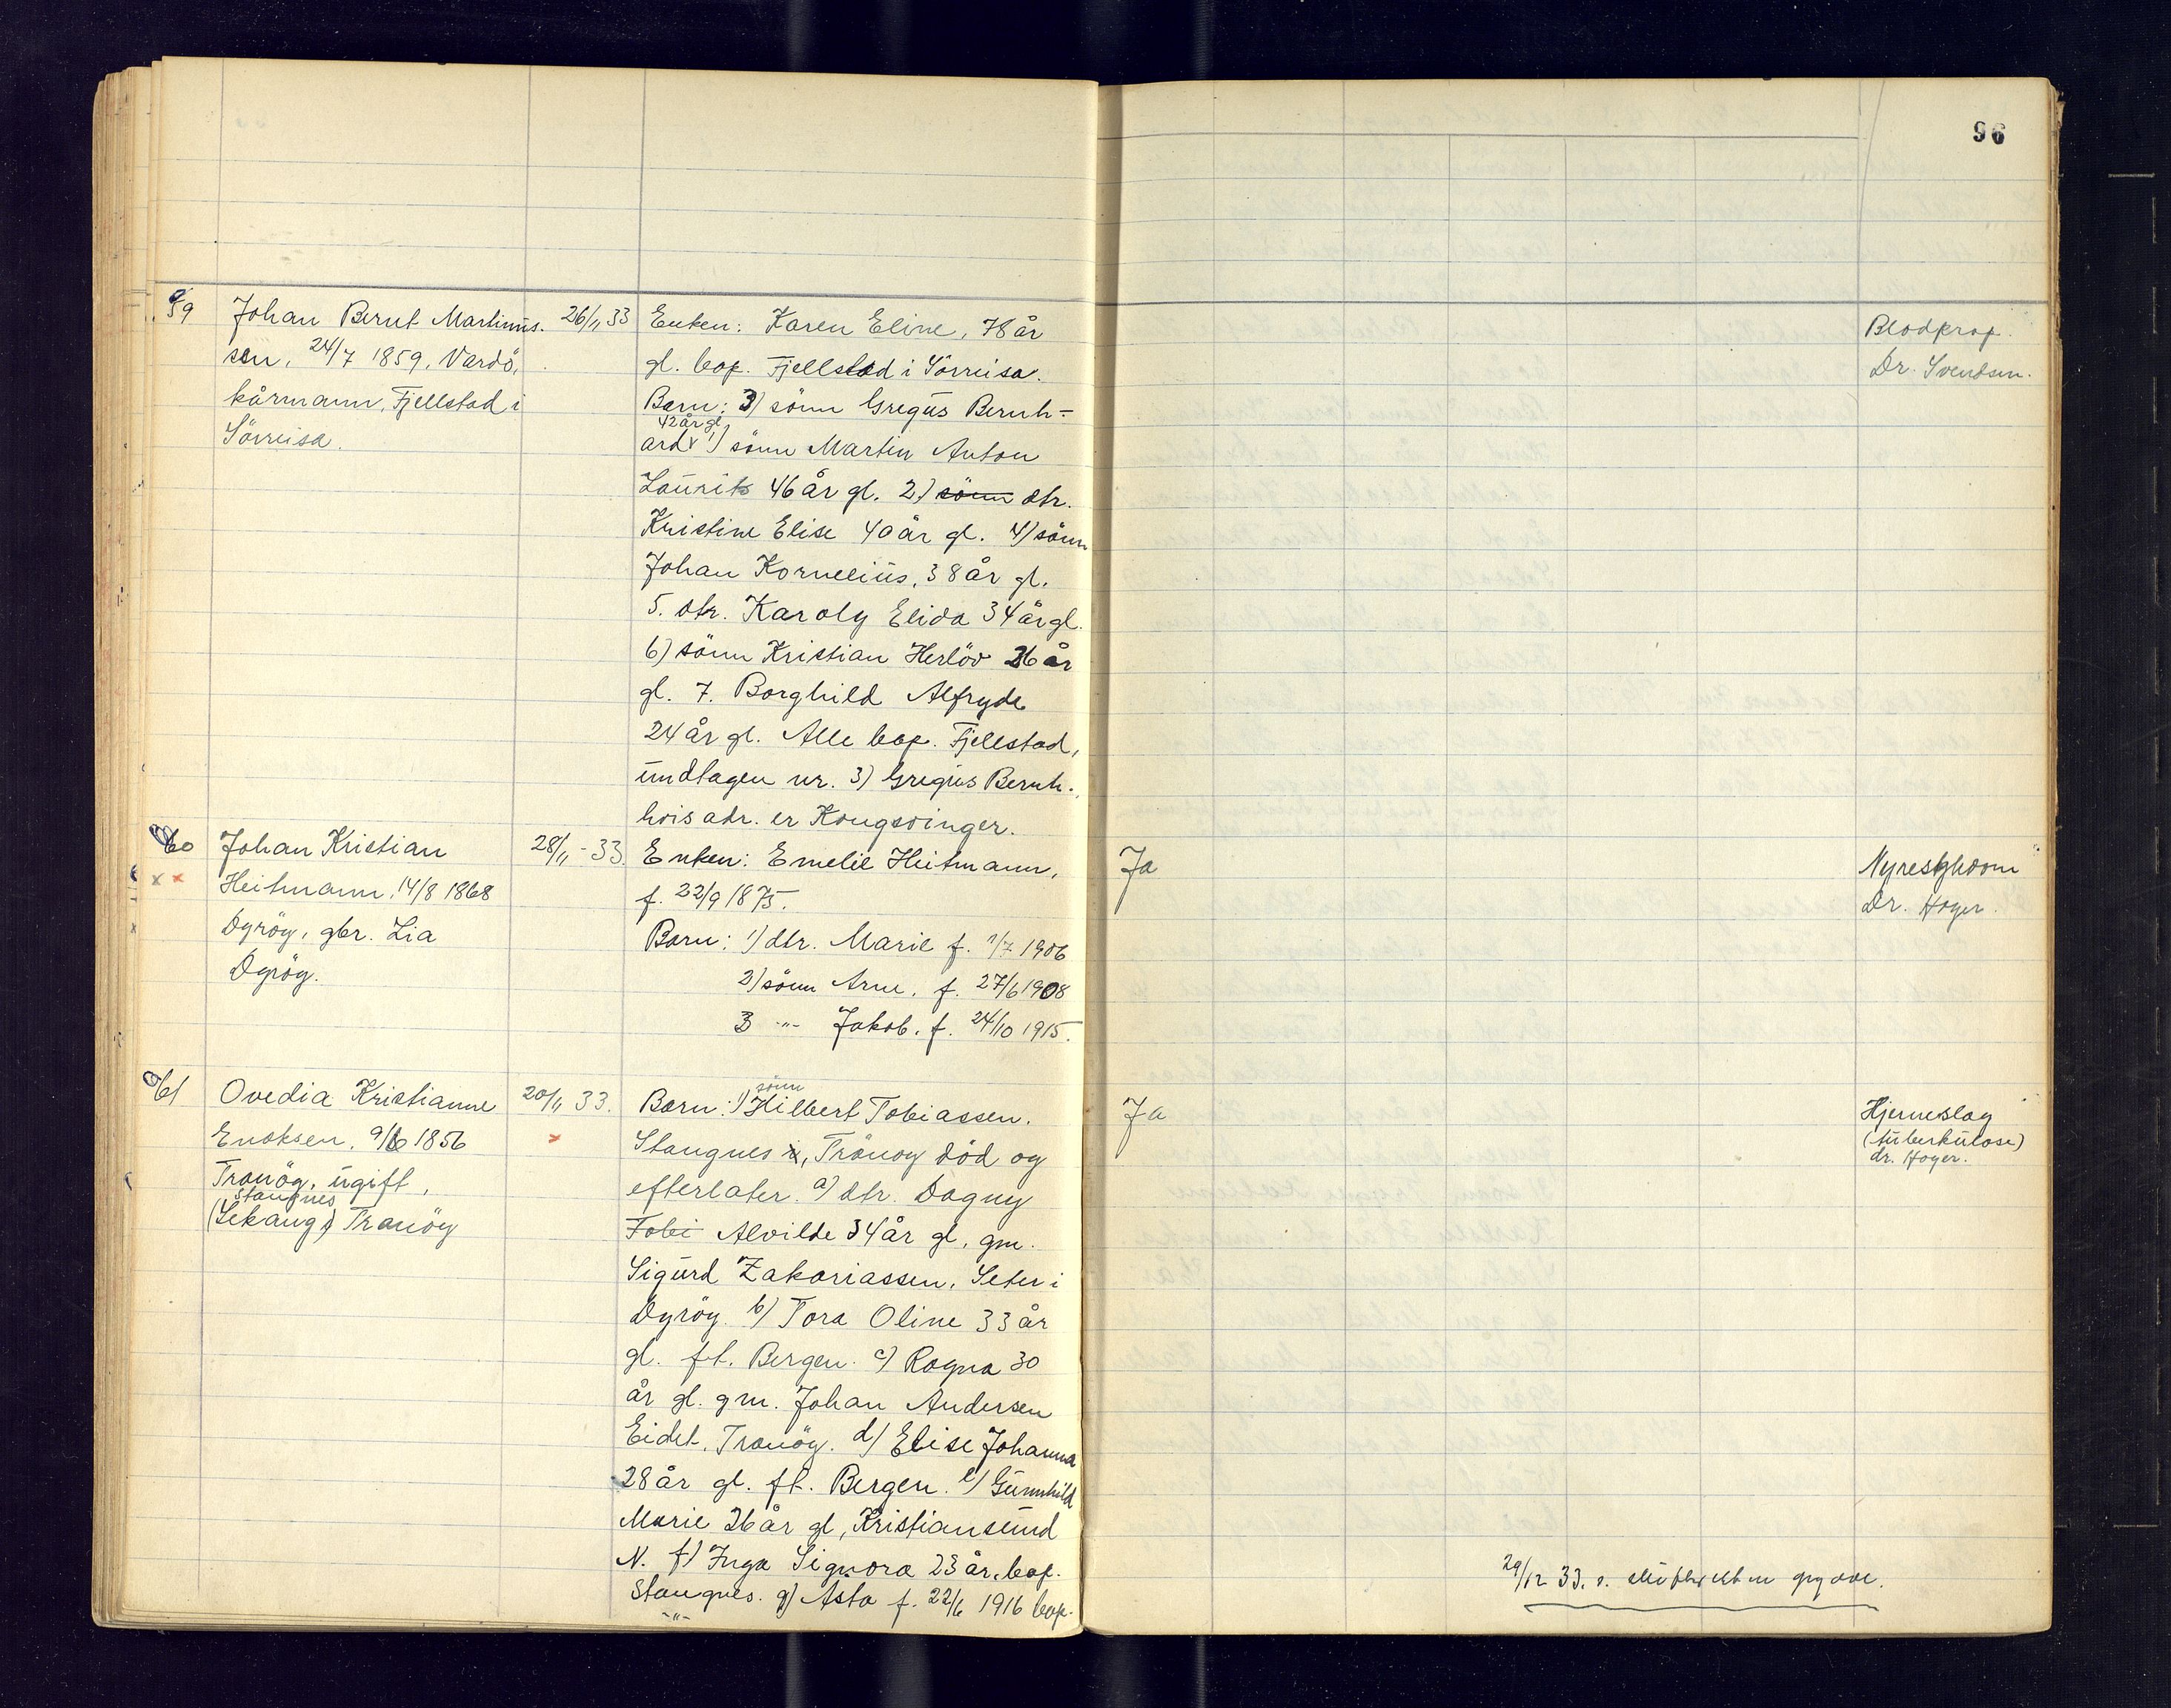 96
59
Johan Bernt Martinus-
sen, 24/7 1859, Vardö,
kårmann, Fjellstad i
Sörreisa.
26/11 33
Enken: Karen Eline, 78 år
gl. bop. Fjellstad i Sörreisa.
Barn: 3) sönn Gregus Bernh-
42 år gl.
ard x 1) sönn Martin Anton
Laurits 46 år gl. 2) sönn dtr.
Kristine Elise 40 år gl. 4) sönn
Johan Kornelius, 38 år gl.
5. dtr. Karoly Elida 34 år gl.
6) sönn Kristian Herlöv 26 år
gl. 7. Borghild Alfryde
24 år gl. Alle bop. Fjellstad,
undtagen nr. 3) Gregus Bernh.
hvis adr. er Kongsvinger.
Blodprop.
Dr. Svendsen.
60
x x
Johan Kristian
Heitmann, 14/8 1868
Dyröy, gbr. Lia
Dyröy.
28/11 - 33.
Enken: Emelie Heitmann,
f. 22/9 1875.
Barn: 1) dtr. Marie f. 1/7 1906
2) sönn Arne, f. 27/6 1908
3 -"- Jakob, f. 24/10 1915.
Ja
Nyresykdom
Dr. Hoyer.
61
Ovedia Kristianne
Enoksen, 9/6 1856
Tranöy, ugift,
Stangnes
(Lekang) Tranöy
20/11 33.
x
sönn
Barn: 1) Hilbert Tobiassen.
Stangnes i, Tranoy död og
efterlater. a) dtr. Dagny
Tobi Alvilde 34 år gl, gm.
Sigurd Zakariassen, Seter i
Dyröy. b) Tora Oline 33 år
gl. ft. Bergen. c) Ragna 30
år gl. gm. Johan Andersen
Eidet, Tranöy. d) Elise Johanna
28 år gl. ft. Bergen. e) Gunnhild
Marie 26 år gl, Kristiansund
N. f) Inga Signora 23 år, bop.
Stangnes. g) Asta f. 22/6 1916 bop.
-"-
Ja
Hjerneslag
(tuberkulose)
dr. Hoyer.
29/12 33. s.